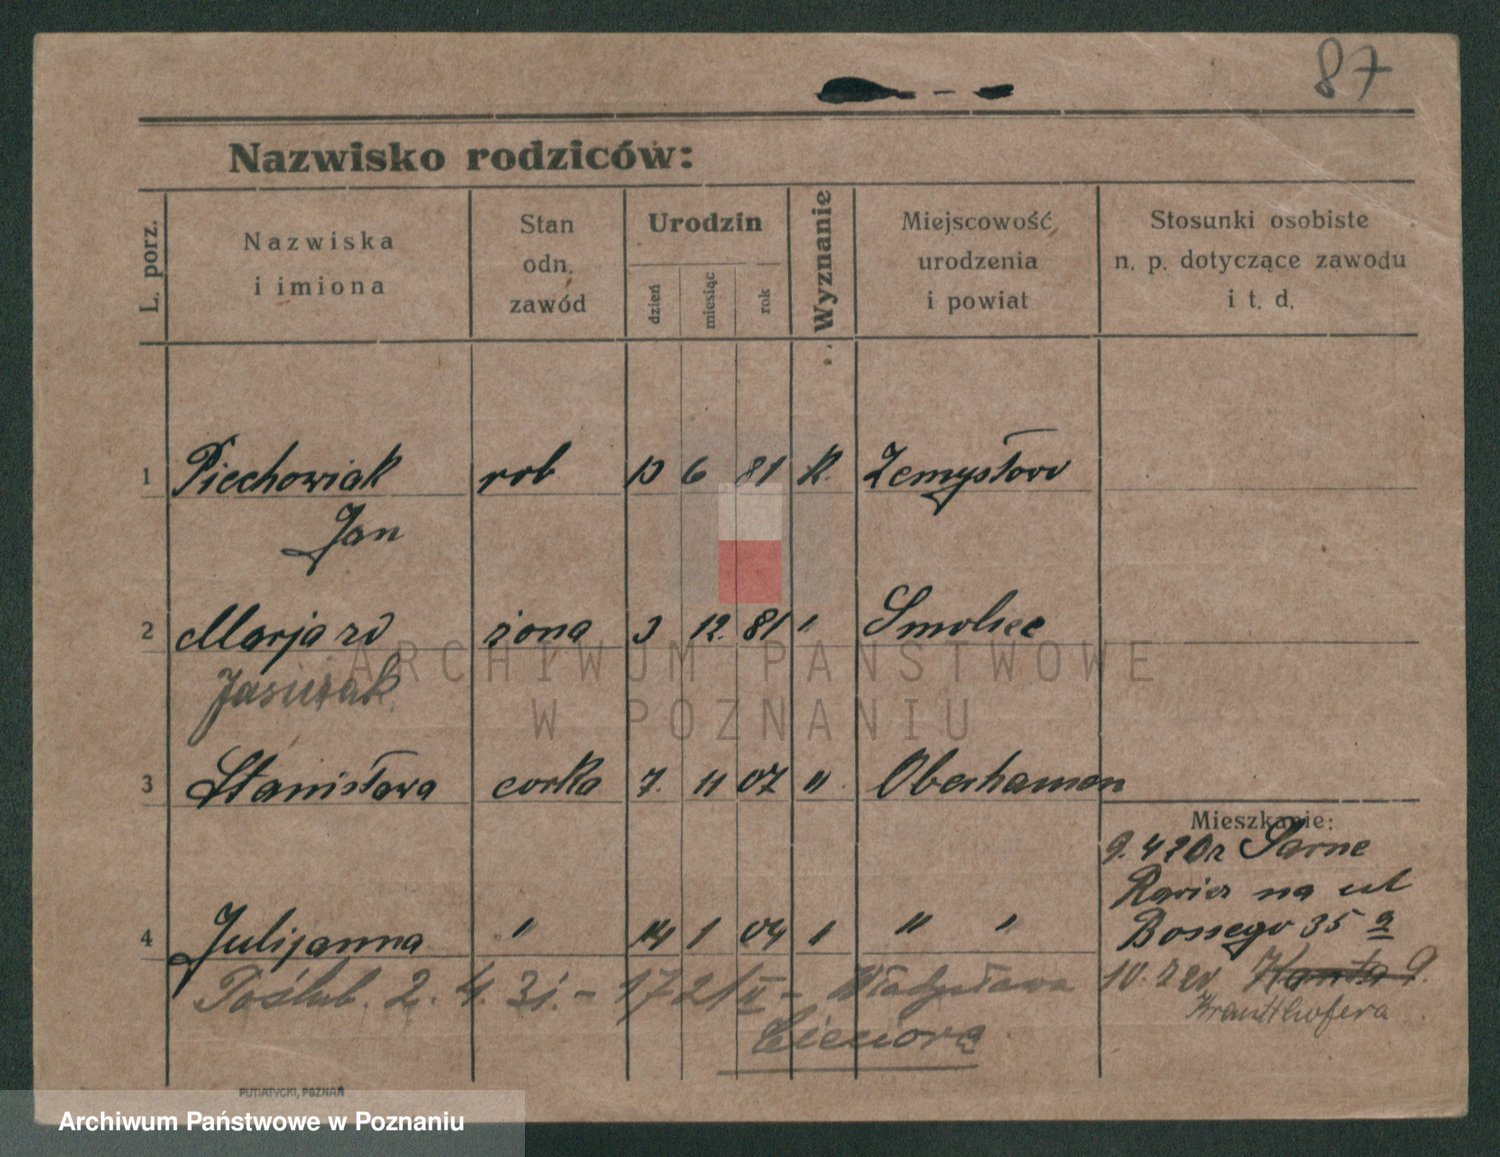 87
Nazwisko rodziców:
L. porz.
Nazwiska
i imiona
Stan
odn.
zawód
Urodzin
dzień
miesiąc
rok
Wyznanie
Miejscowość
urodzenia
i powiat
Stosunki osobiste
n. p. dotyczące zawodu
i t. d.
1 Piechowiak rob 13 6 81 K. Zemysłow
Jan
2 Marja zd żona 3 12. 81 " Smolice
ARCHIWUM PAŃSTWOWE
W POZNANIU
3 Stanisława corka 7. 11 07 "
Mieszkanie:
9. 4 20 z Sarne
na ul
4 Julijanna " 14 1 04 " " "
35 a
Poślub. 2. 4. 31. - 1721/II - Władysława
10. 7 20
Krauthofera
PUTIATYCKI, POZNAŃ
Archiwum Państwowe w Poznaniu